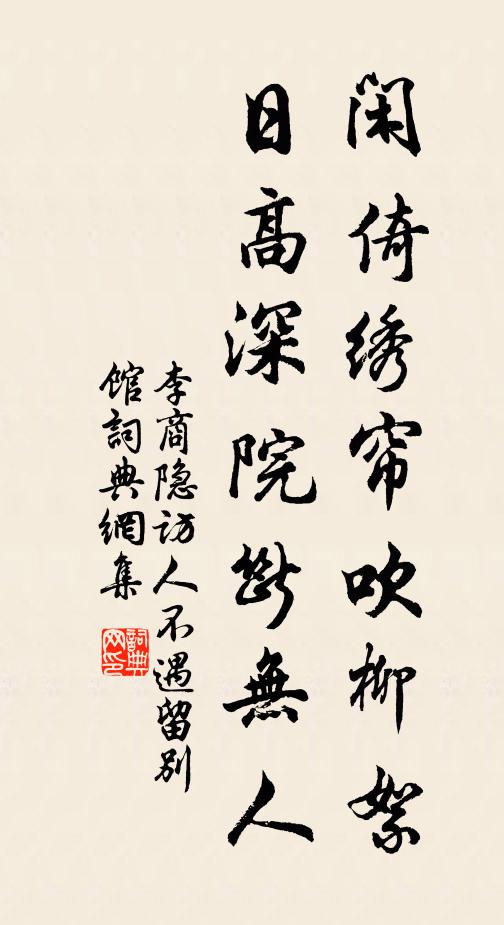 闲倚绣帘吹柳絮
日高深院断無人
李商隐访人不遇留别
馆詞典網集
詞典网印